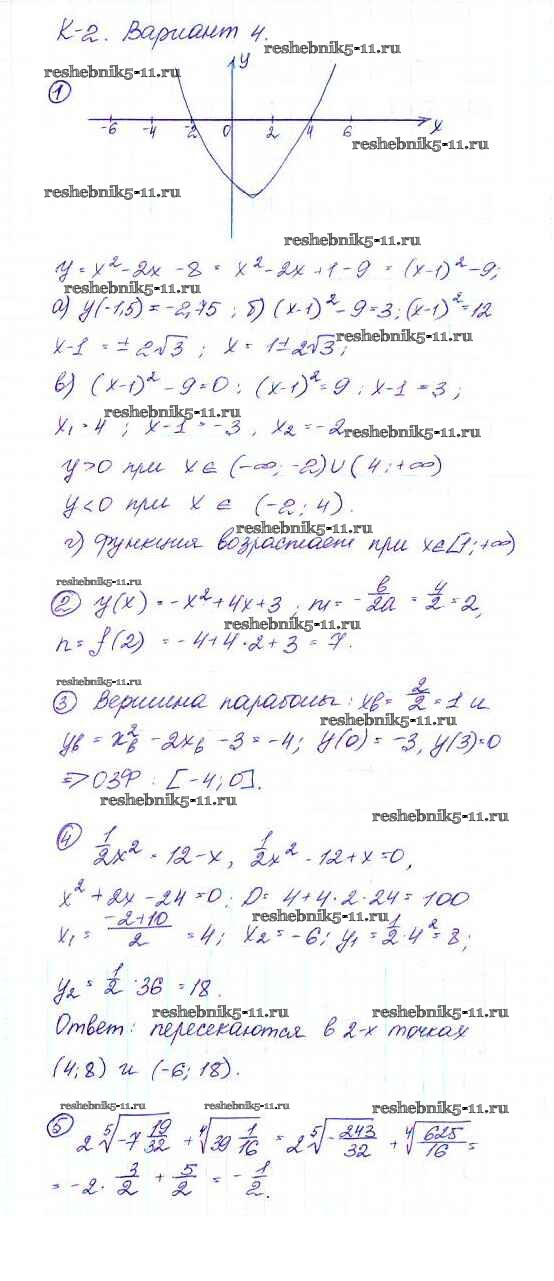 К-2. Вариант 4.
reshebnik5-11.ru
reshebnik5-11.ru
① y
-6 -4 -2 0 2 4 6 x
reshebnik5-11.ru
reshebnik5-11.ru
reshebnik5-11.ru
y = x² - 2x - 8 = x² - 2x + 1 - 9 = (x-1)² - 9;
reshebnik5-11.ru
а) y(-1,5) = -2,75; б) (x-1)² - 9 = 3; (x-1)² = 12
x-1 = ± 2√3; x = 1 ± 2√3;
reshebnik5-11.ru
в) (x-1)² - 9 = 0; (x-1)² = 9; x-1 = 3;
reshebnik5-11.ru
x₁ = 4; x-1 = -3, x₂ = -2
reshebnik5-11.ru
y>0 при x ∈ (-∞; -2) ∪ (4; +∞)
y<0 при x ∈ (-2; 4).
reshebnik5-11.ru
г) функция возрастает при x∈[1; +∞)
reshebnik5-11.ru
② y(x) = -x² + 4x + 3; m = -b/2a = 4/2 = 2,
reshebnik5-11.ru
n = f(2) = -4 + 4·2 + 3 = 7.
reshebnik5-11.ru
③ Вершина параболы: xв = 2/2 = 1 и
reshebnik5-11.ru
yв = xв² - 2xв - 3 = -4; y(0) = -3, y(3) = 0
⇒ ОЗФ: [-4; 0].
reshebnik5-11.ru
reshebnik5-11.ru
④ 1/2x² = 12 - x, 1/2x² - 12 + x = 0,
reshebnik5-11.ru
x² + 2x - 24 = 0; D = 4 + 4·2·24 = 100
reshebnik5-11.ru
x₁ = (-2+10)/2 = 4; x₂ = -6; y₁ = 1/2·4² = 8;
reshebnik5-11.ru
y₂ = 1/2·36 = 18.
reshebnik5-11.ru
Ответ: пересекаются в 2-х точках
reshebnik5-11.ru
(4; 8) и (-6; 18).
reshebnik5-11.ru
reshebnik5-11.ru
⑤ 2 ⁵√(-7 19/32) + ⁴√(39 1/16) = 2 ⁵√(-243/32) + ⁴√(625/16) =
reshebnik5-11.ru
= -2 · 3/2 + 5/2 = -1/2.